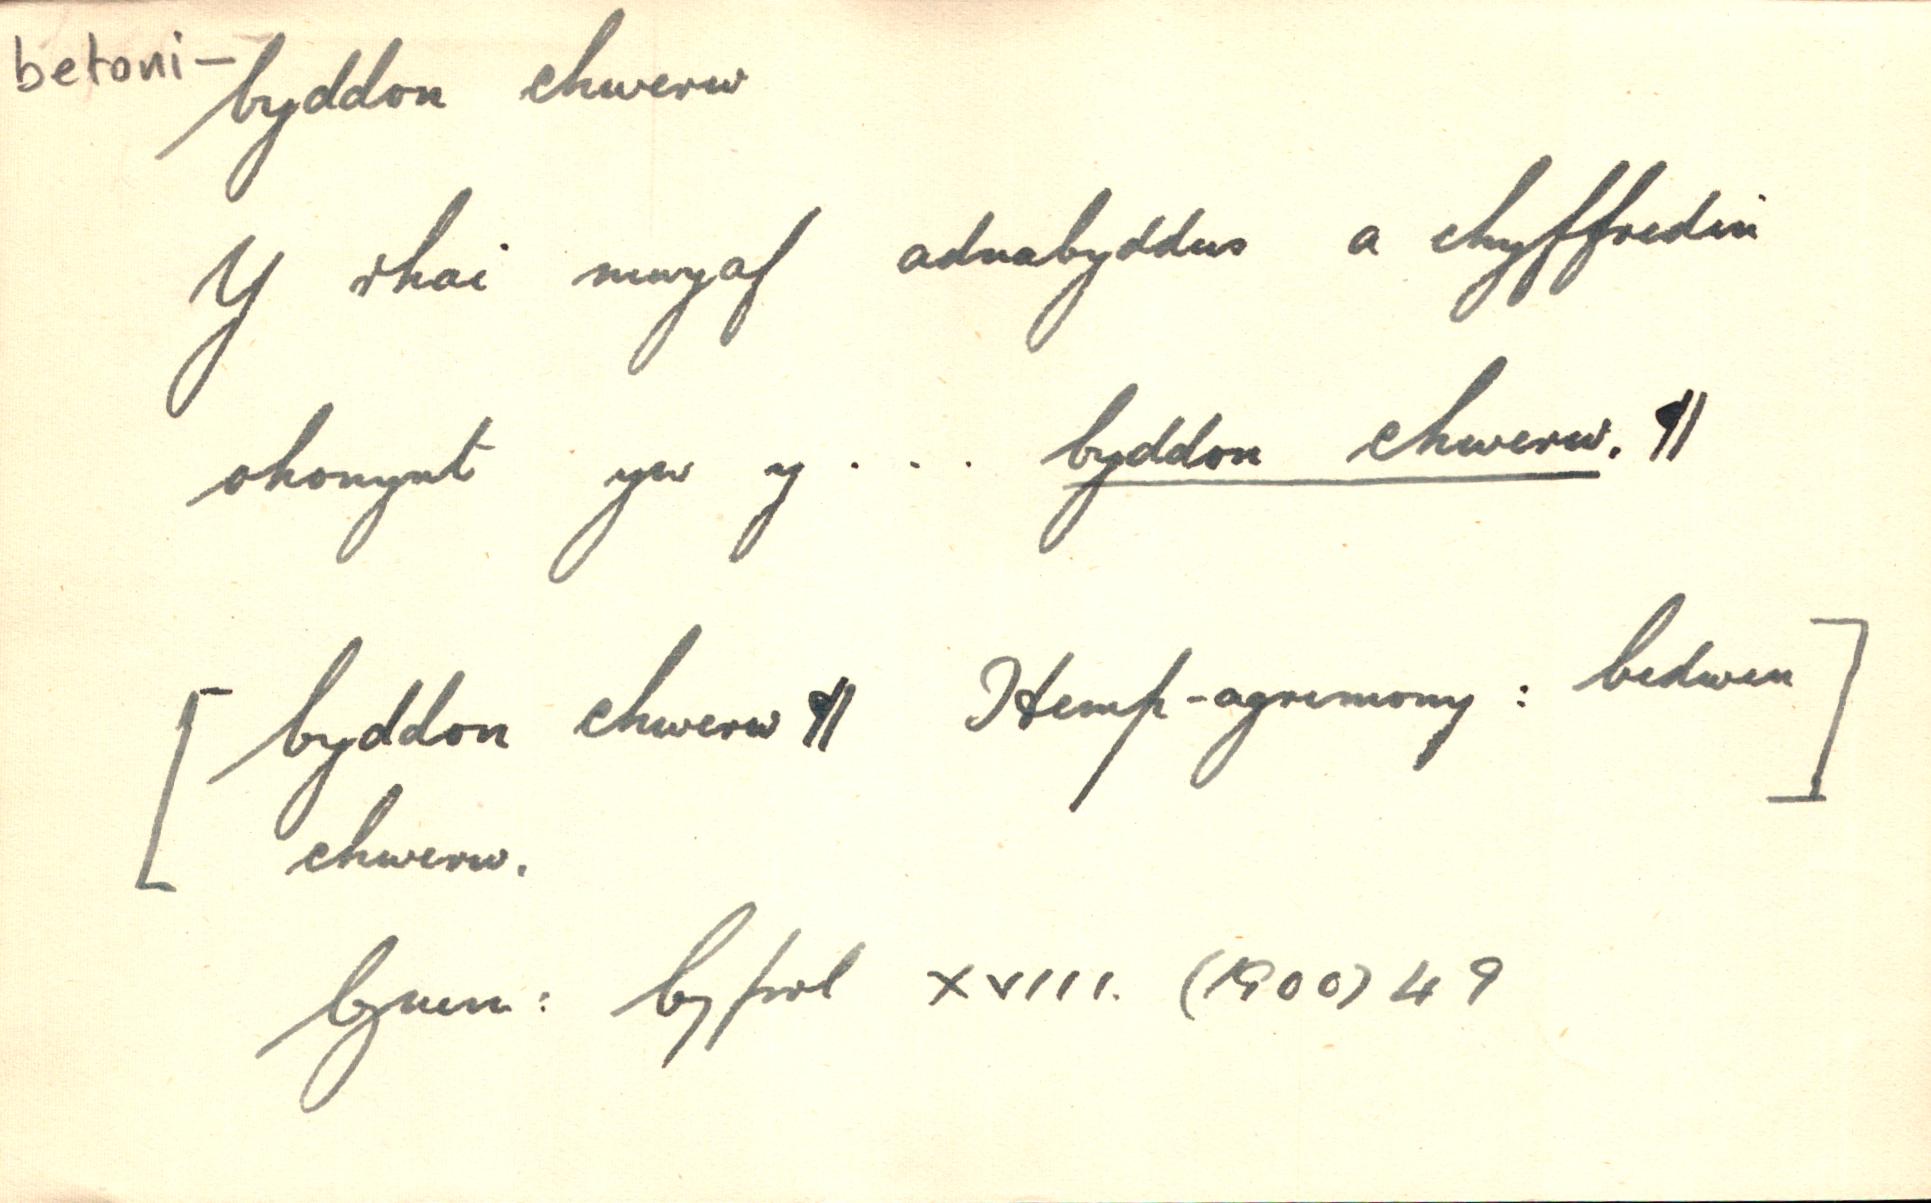 betoni- byddon chwerw
Y rhai mwyaf adnabyddus a chyffredin
ohonynt yw y . . . byddon chwerw. ¶
[byddon chwerw ¶ Hemp-agrimony : bedwen]
chwerw.
XVIII. (1900) 49